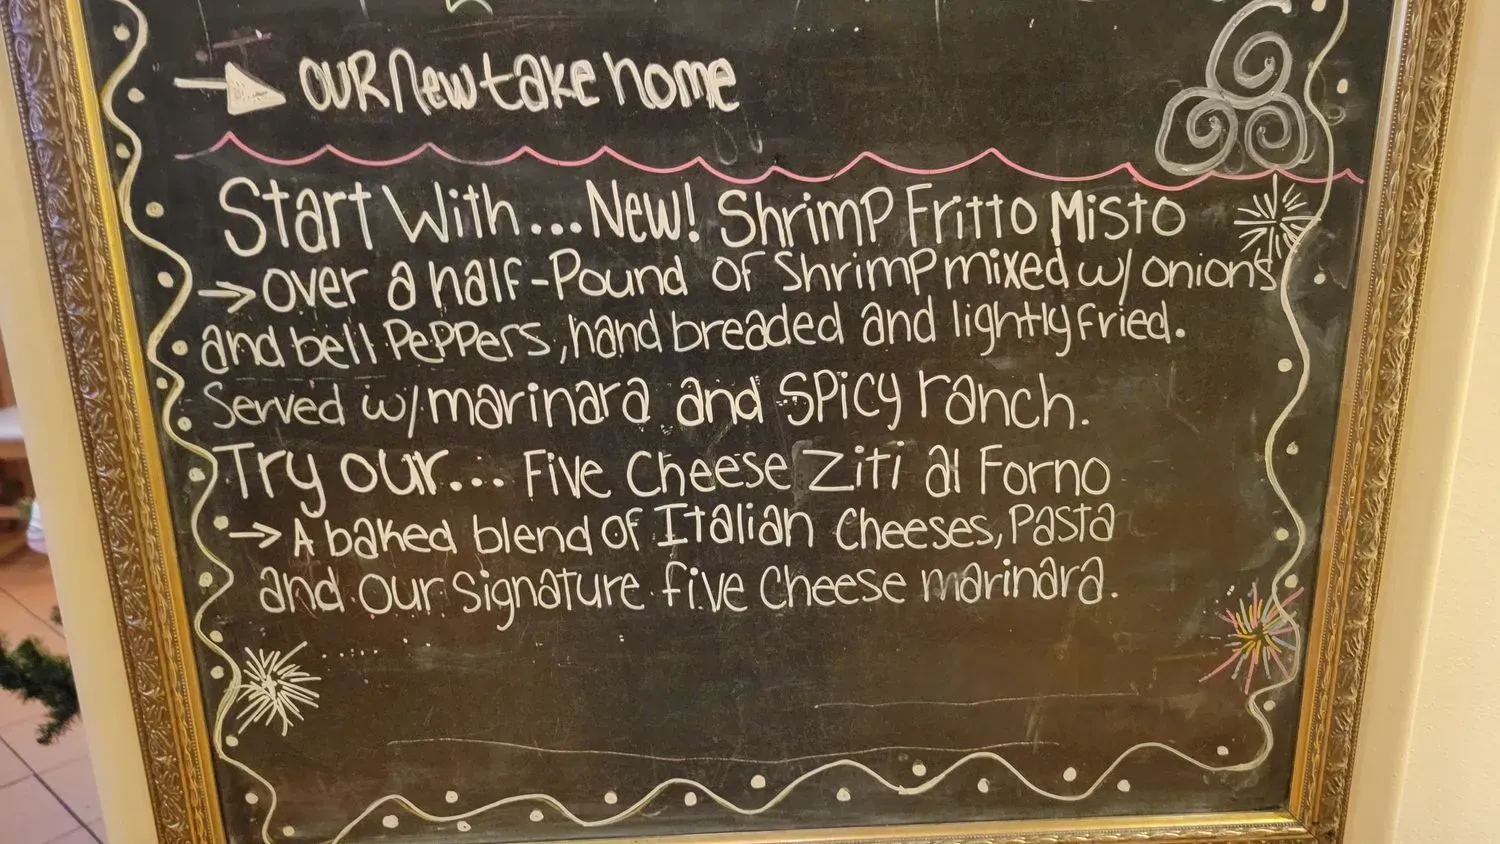 OUR New take home
Start With...New! Shrimp Fritto Misto
→over a half-Pound of shrimp mixed w/ onions
and bell Peppers, hand breaded and lightly fried.
Served w/ marinara and spicy ranch.
Try our... Five Cheese Ziti al Forno
→A baked blend of Italian Cheeses, Pasta
and our signature five cheese marinara.